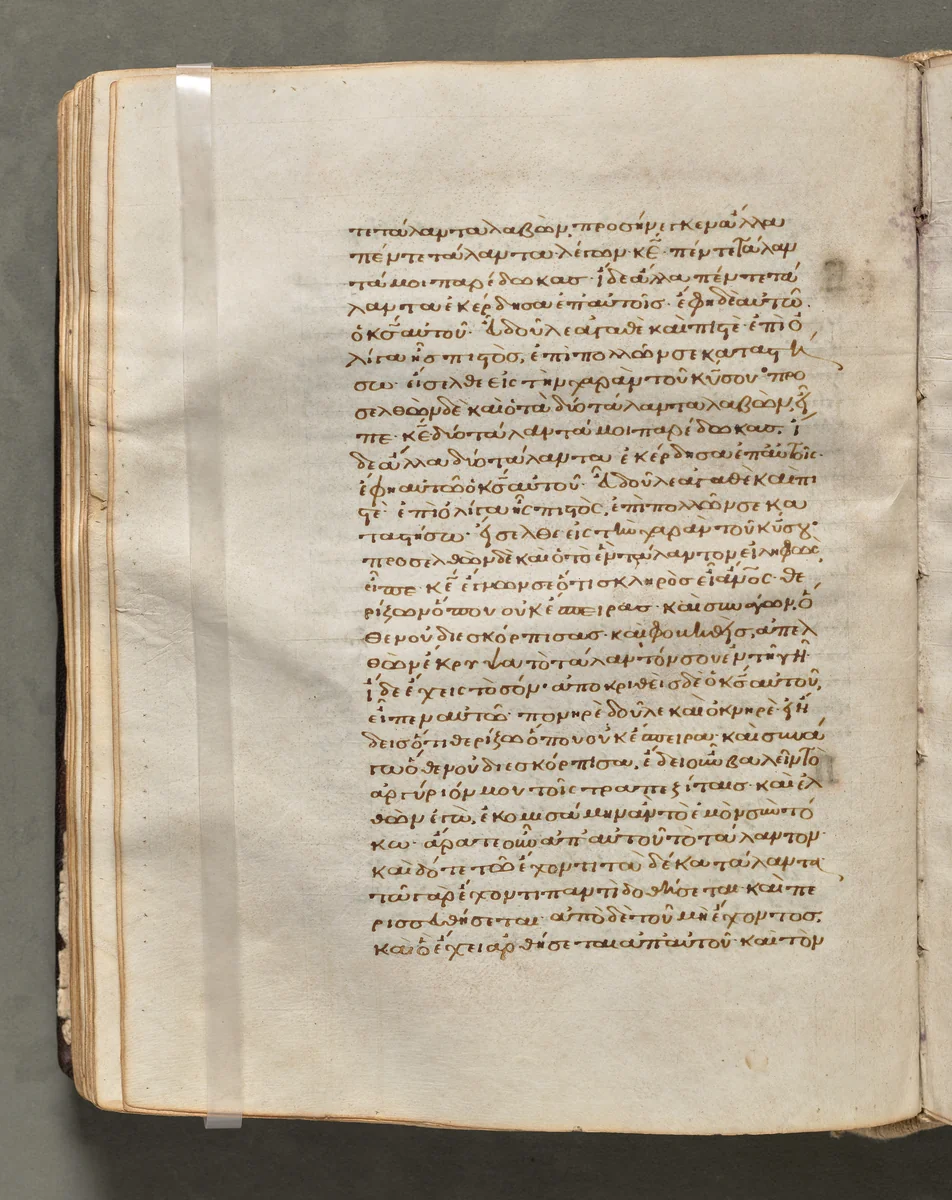 τε τάλαντα λαβὼν, προσήνεγκεν ἄλλα
πέντε τάλαντα λέγων· κ̅ε̅· πέντε τάλαν
τά μοι παρέδωκας· ἴδε ἄλλα πέντε τά
λαντα ἐκέρδησα ἐπ' αὐτοῖς· ἔφη δὲ αὐτῶ
ὁ κ̅ς̅ αὐτοῦ· εὖ δοῦλε ἀγαθὲ καὶ πιστὲ· ἐπὶ ὀ
λίγα ἦς πιστὸς, ἐπὶ πολλῶν σε καταστή
σω· εἴσελθε εἰς τὴν χαρὰν τοῦ κ̅υ̅ σου· προ
σελθὼν δὲ καὶ ὁ τὰ δύο τάλαντα λαβὼν, εἶ
πε· κ̅ε̅ δύο τάλαντά μοι παρέδωκας, ἴ
δε ἄλλα δύο τάλαντα ἐκέρδησα ἐπ' αὐτοῖς·
ἔφη αὐτῶ ὁ κ̅ς̅ αὐτοῦ· εὖ δοῦλε ἀγαθὲ καὶ πι
στὲ· ἐπὶ ὀλίγα ἦς πιστὸς, ἐπὶ πολλῶν σε κα
ταστήσω· εἴσελθε εἰς τὴν χαρὰν τοῦ κ̅υ̅ σου·
προσελθὼν δὲ καὶ ὁ τὸ ἓν τάλαντον εἰληφὼς,
εἶπε· κ̅ε̅ ἔγνων σε ὅτι σκληρὸς εἶ ἄν̅ο̅ς· θε
ρίζων ὅπου οὐκ ἔσπειρας· καὶ συνάγων, ὅ
θεν οὐ διεσκόρπισας· καὶ φοβηθεὶς, ἀπελ
θὼν ἔκρυψα τὸ τάλαντόν σου ἐν τῆ γῆ·
ἴδε ἔχεις τὸ σόν· ἀποκριθεὶς δὲ ὁ κ̅ς̅ αὐτοῦ,
εἶπεν αὐτῶ· πονηρὲ δοῦλε καὶ ὀκνηρὲ· ἤ
δεις ὅτι θερίζω ὅπου οὐκ ἔσπειρα· καὶ συνά
γω ὅθεν οὐ διεσκόρπισα, ἔδει οὖν βαλεῖν τὸ
ἀργύριόν μου τοῖς τραπεζίταις· καὶ ἐλ
θὼν ἐγὼ, ἐκομισάμην ἂν τὸ ἐμὸν σὺν τό
κω· ἄρατε οὖν ἀπ' αὐτοῦ τὸ τάλαντον·
καὶ δότε τῶ ἔχοντι τὰ δέκα τάλαντα·
τῶ γὰρ ἔχοντι παντὶ δοθήσεται· καὶ πε
ρισσευθήσεται· ἀπὸ δὲ τοῦ μὴ ἔχοντος,
καὶ ὃ ἔχει ἀρθήσεται ἀπ' αὐτοῦ· καὶ τὸν